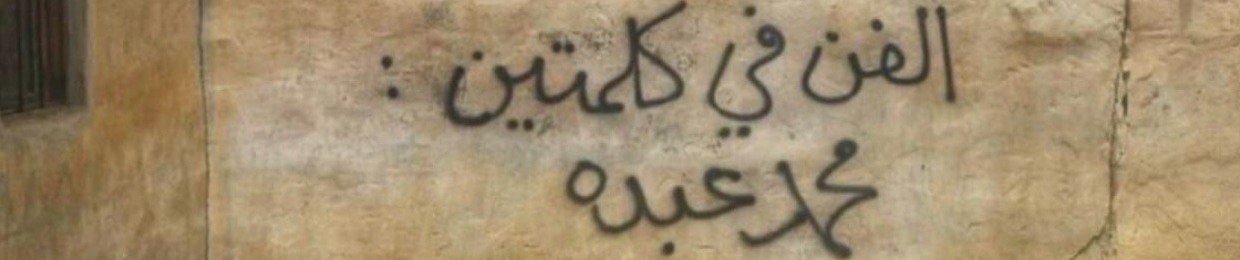 الفن في كلمتين :
محمد عبده